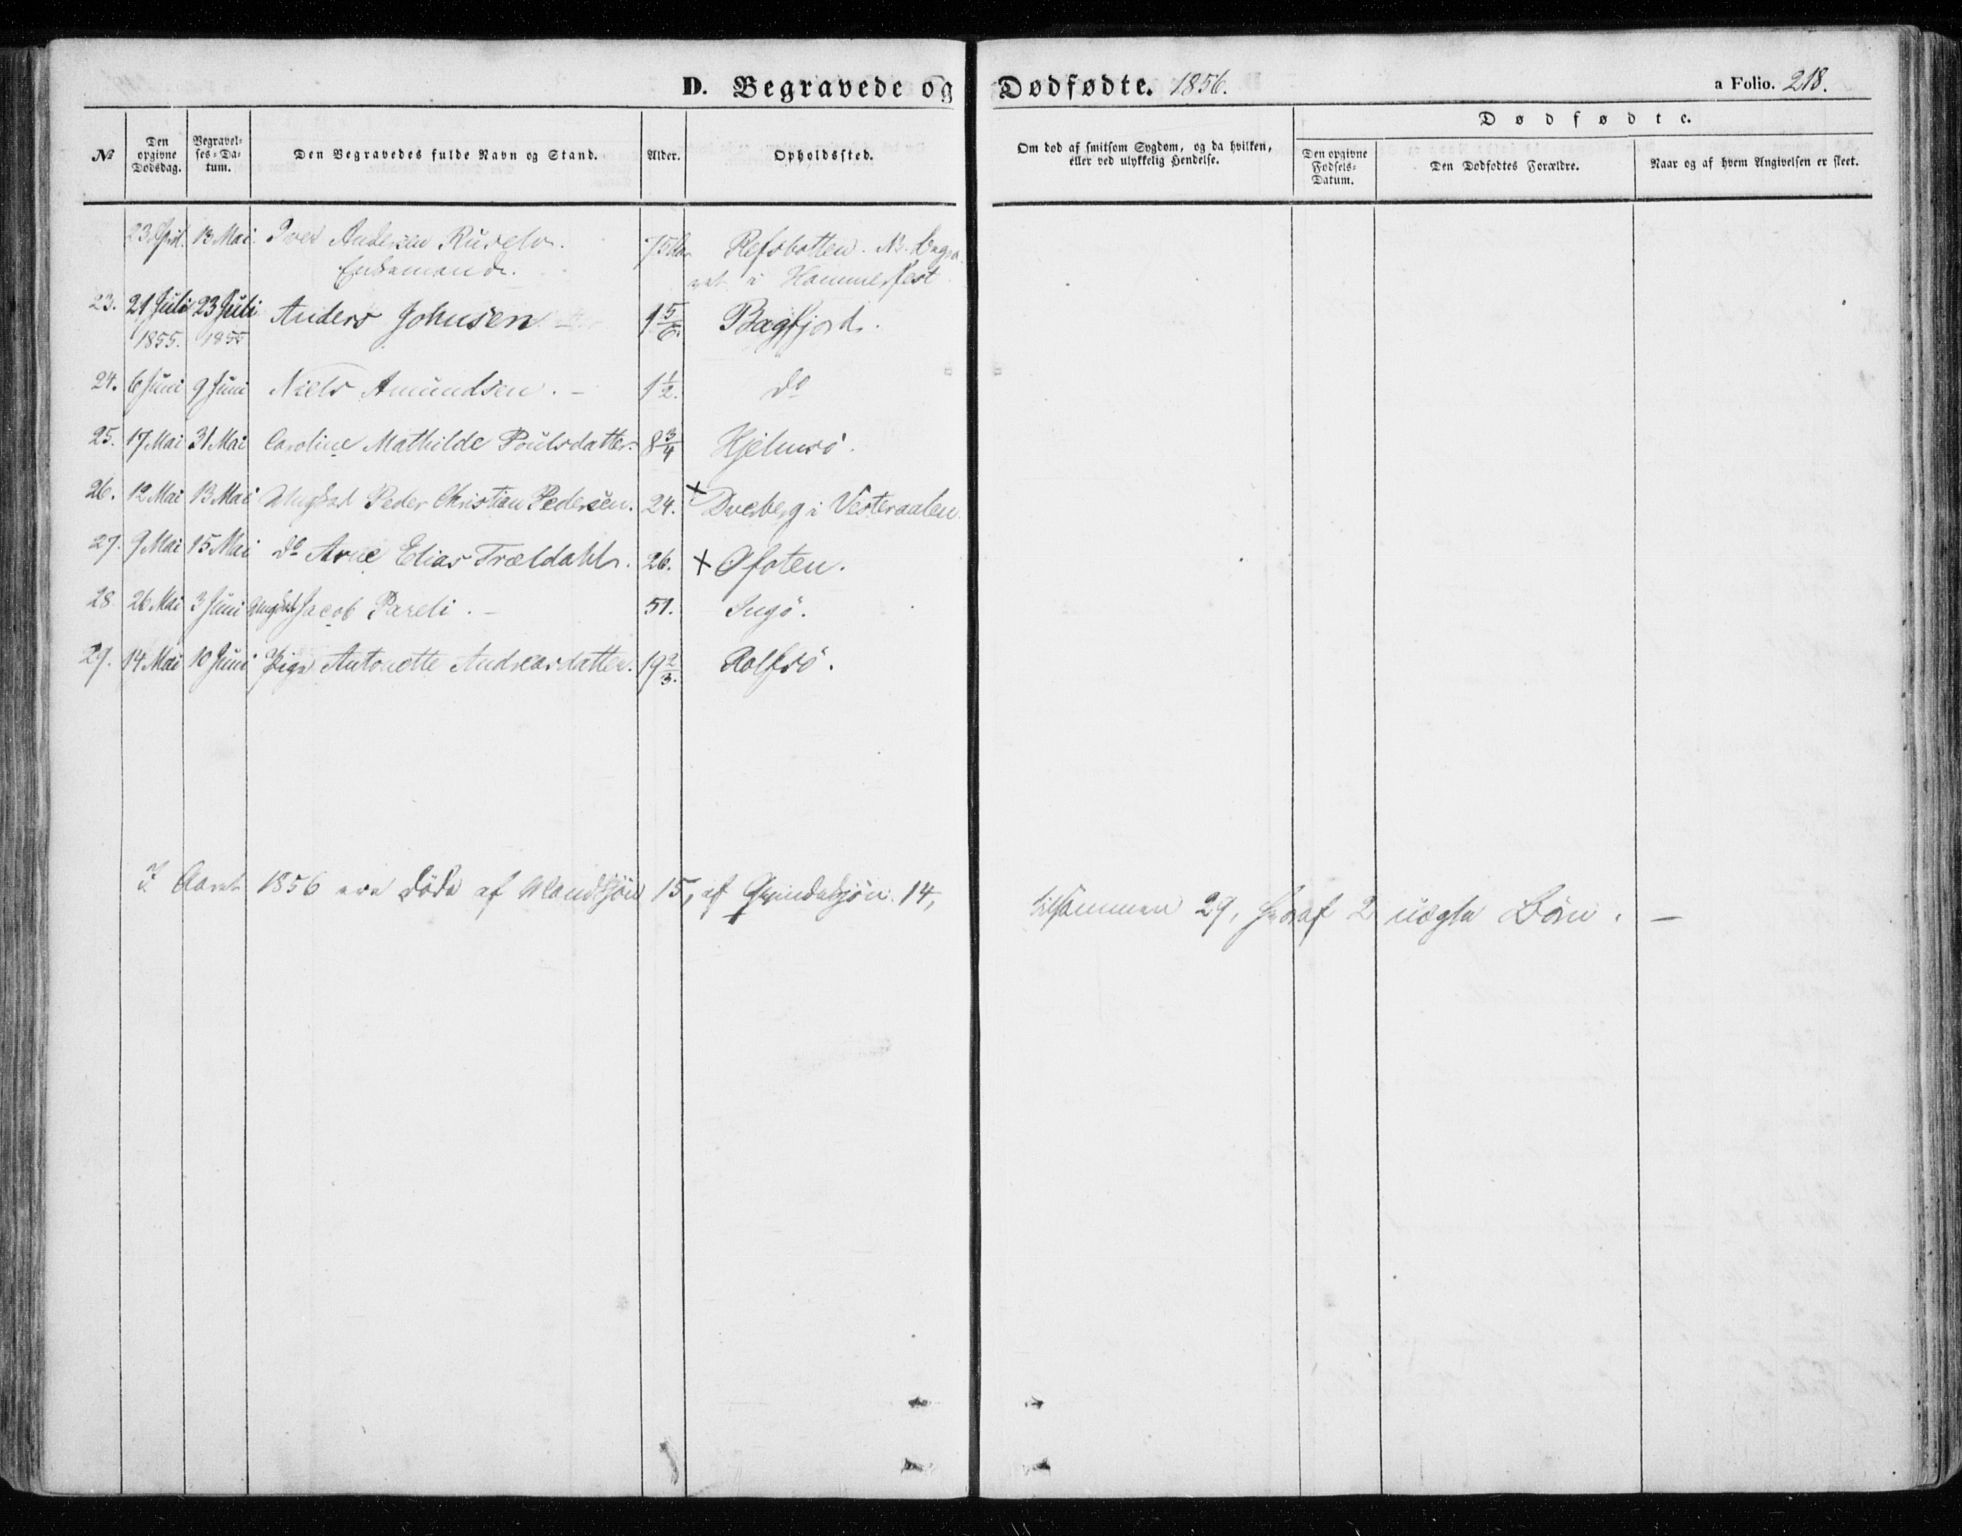 D. Begravede og Dødfødte. 1856.
a Folio. 218.
№
Den opgivne Dødsdag.
Begravelses-Datum.
Den Begravedes fulde Navn og Stand.
Alder.
Opholdssted.
Om død af smitsom Sygdom, og da hvilken, eller ved ulykkelig Hendelse.
Dødfødte.
Den opgivne Fødsels-Datum.
Den Dødfødtes Forældre.
Naar og af hvem Angivelsen er skeet.
23 April. 13 Mai. Iver Andersen 75 Refsbotten. NB. begra-
Enkemand. vet i Hammerfest
23. 21 Juli 23 Juli Anders Johnsen 1 5/6. Bagfjord.
1855. 1855
24. 6 Juni 9 Juni Niels Amundsen. – 1 1/2. do
25. 17 Mai 31 Mai Caroline Mathilde Poulsdatter. 8 3/4 Hjelmsö.
26. 12 Mai 13 Mai Ungkarl Peder Christian Pedersen. 24. + Dverberg i Vesteraalen.
27. 9 Mai 15 Mai do Arne Elias Trældahl. 26. + Ofoten.
28. 26 Mai 3 Juni Ungkarl Jacob Pareli. – 51. Ingö.
29. 14 Mai 10 Juni Pige Antonette Andreasdatter. 19 2/3. Rolfsö.
I Aaret 1856 ere døde af Mandkjøn 15, af Qvindekjøn 14, tilsammen 29, heraf 2 uægte Börn. –